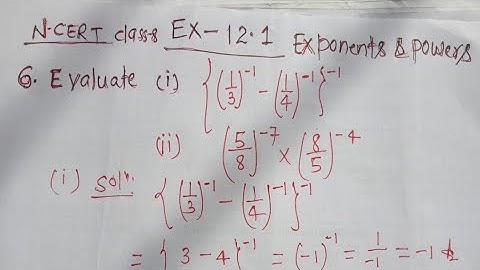 N.CERT class-8 EX-12.1 Exponents & powers
6. Evaluate (i) {(1/3)⁻¹ - (1/4)⁻¹}⁻¹
(ii) (5/8)⁻⁷ × (8/5)⁻⁴
(i) Solⁿ: {(1/3)⁻¹ - (1/4)⁻¹}⁻¹
= {3-4}⁻¹ = (-1)⁻¹ = 1/-1 = -1